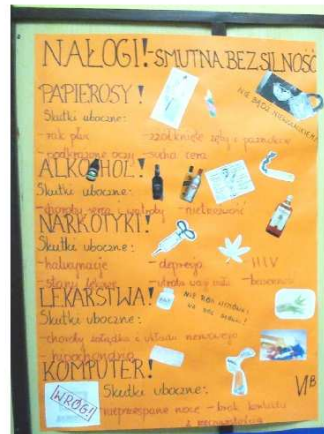 NAŁOGI!-SMUTNA BEZSILNOŚĆ
NIE BĄDŹ NIEWOLNIKIEM!
PAPIEROSY!
Skutki uboczne:
-rak płuc -zżółknięte zęby i paznokcie
-podkrążone oczy -sucha cera
ALKOHOL!
Skutki uboczne:
-choroby serca i wątroby -nietrzeźwość
NARKOTYKI!
Skutki uboczne:
-halucynacje -depresja -HIV
-stany lękowe -utrata wagi ciała
LEKARSTWA!
NIE RÓB
Skutki uboczne:
-choroby żołądka i układu nerwowego
-hipochondria
KOMPUTER!
Skutki uboczne:
WRÓG!
-nieprzespane noce -brak kontaktu
z rzeczywistością
VI B